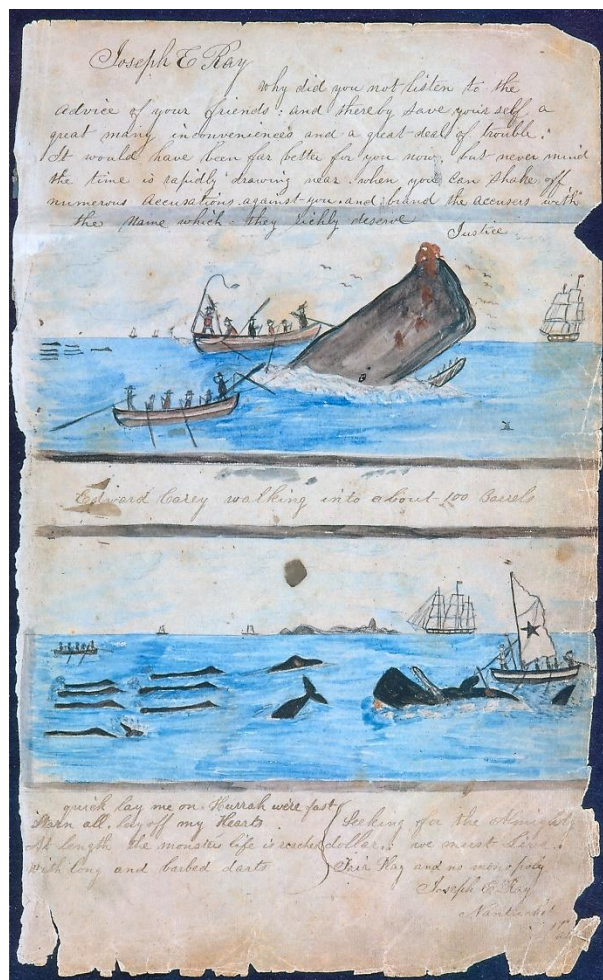 Joseph E Ray
why did you not listen to the
advice of your friends; and thereby save your self a
great many inconveniences and a great deal of trouble.
It would have been far better for you now, but never mind
the time is rapidly drawing near. when you can shake off
numerous accusations against you. and brand the accusers with
the Name which they richly deserve
Justice
Edward Carey walking into about 100 Barrels
quick lay me on. Hurrah we're fast
Starn all. lay off my Hearts
At length the monsters life is reached
with long and barbed darts
Seeking for the Almighty
dollar. we must Live.
Fair Play and no
Joseph E Ray
Nantucket